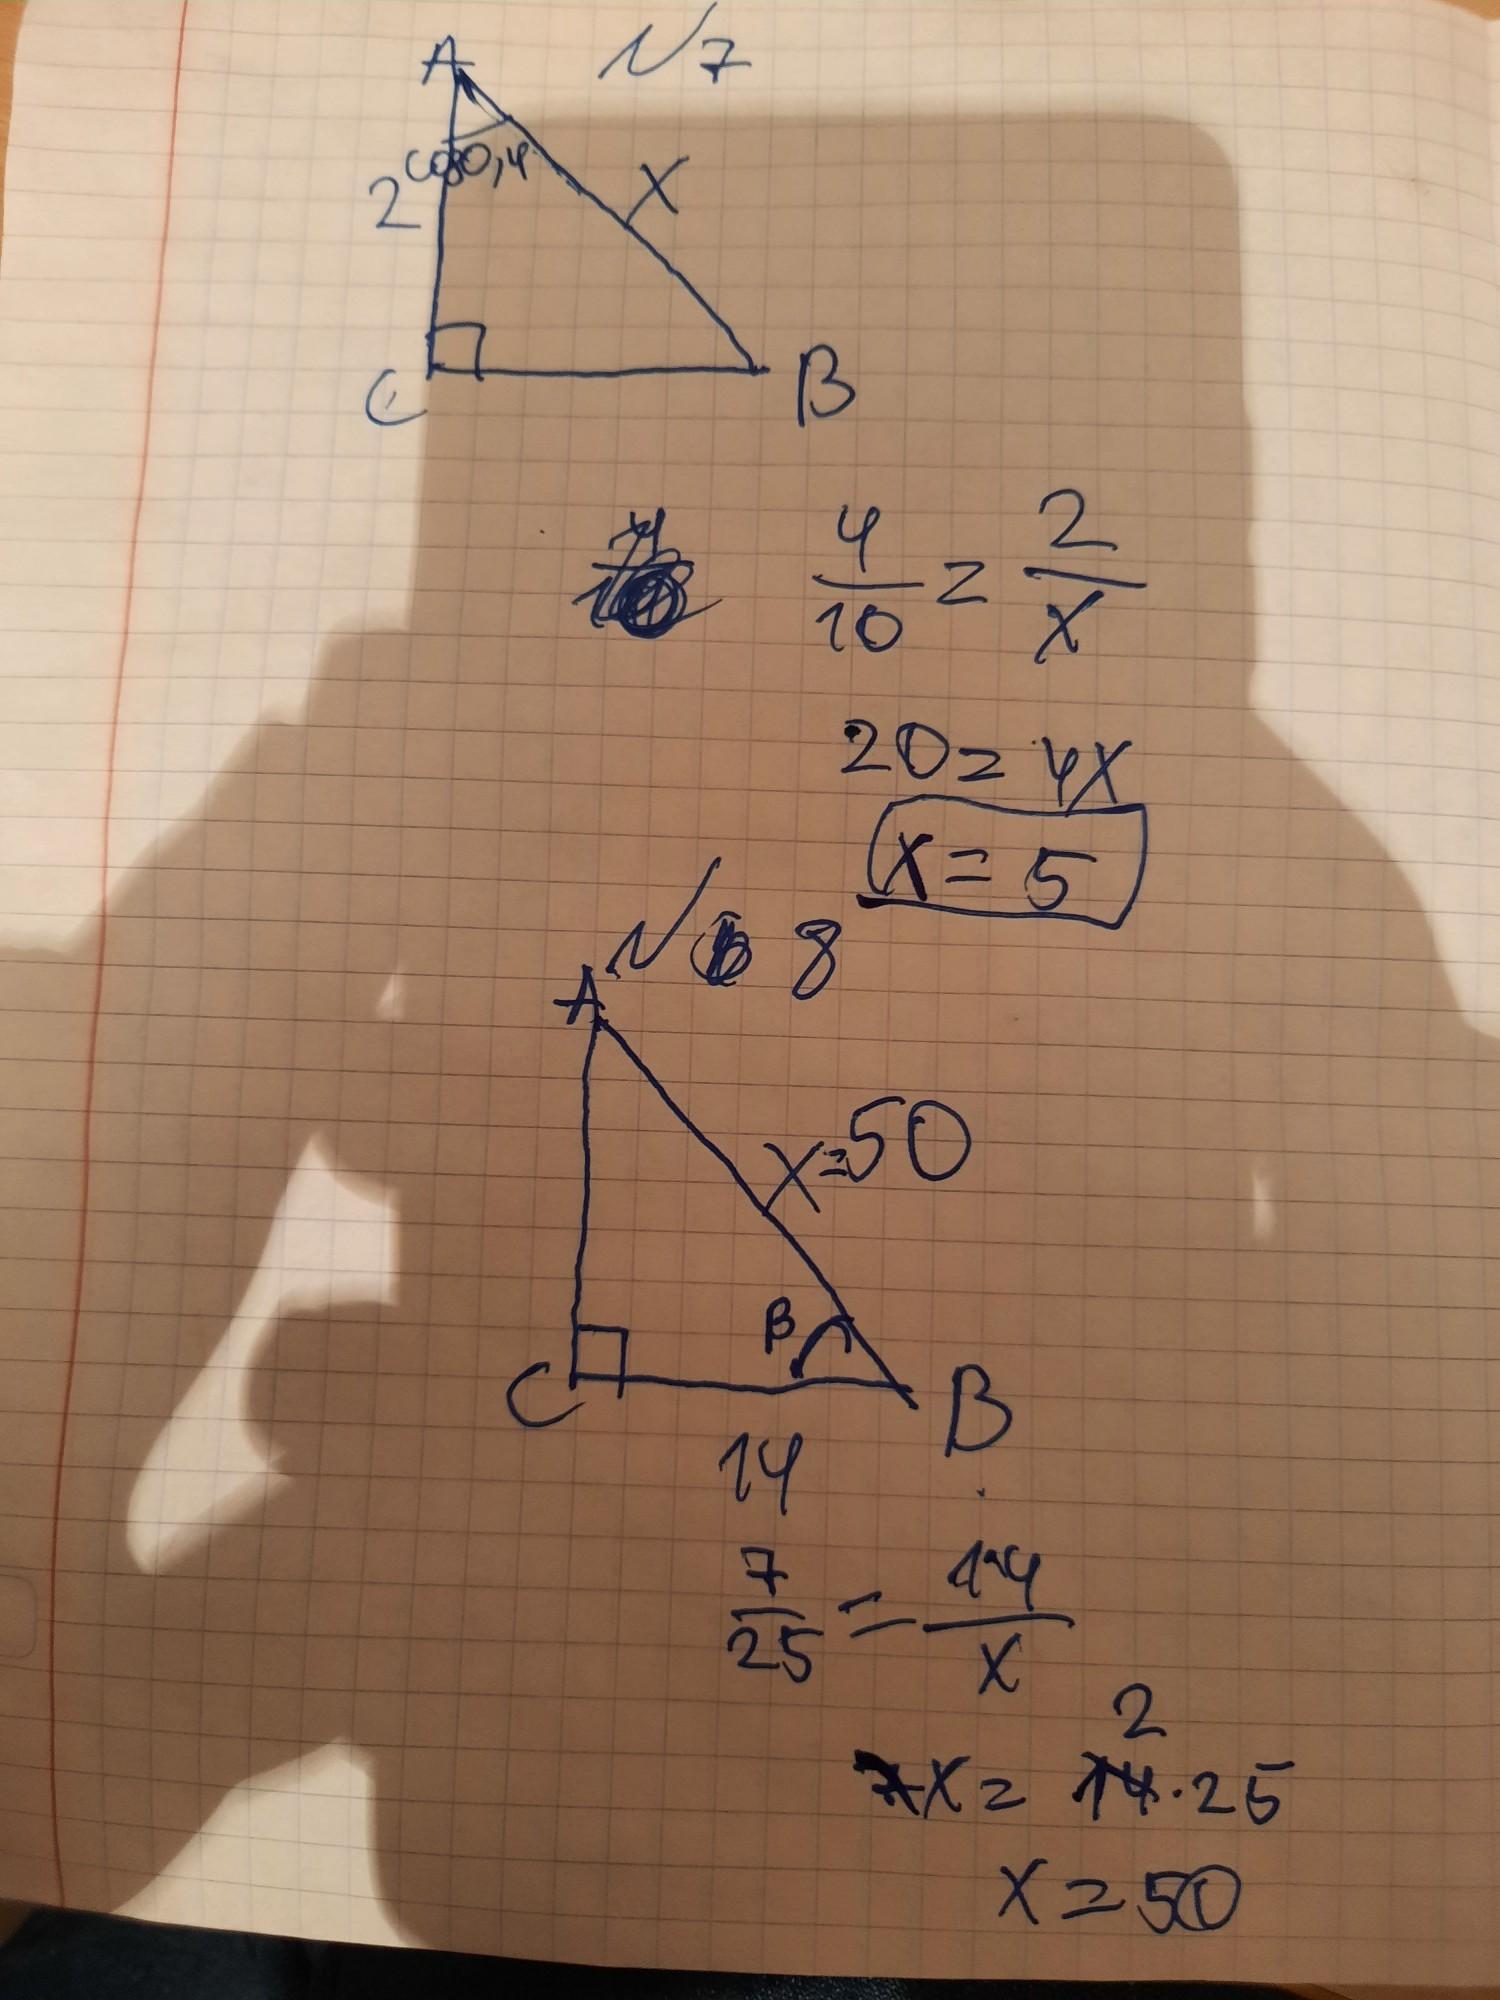 №7
A
cos 0,4
2
X
C
B
4/10 = 2/X
20 = 4X
X = 5
№ 8
A
X=50
β
C
B
14
7/25 = 14/X
2
7X = 14·25
X = 50